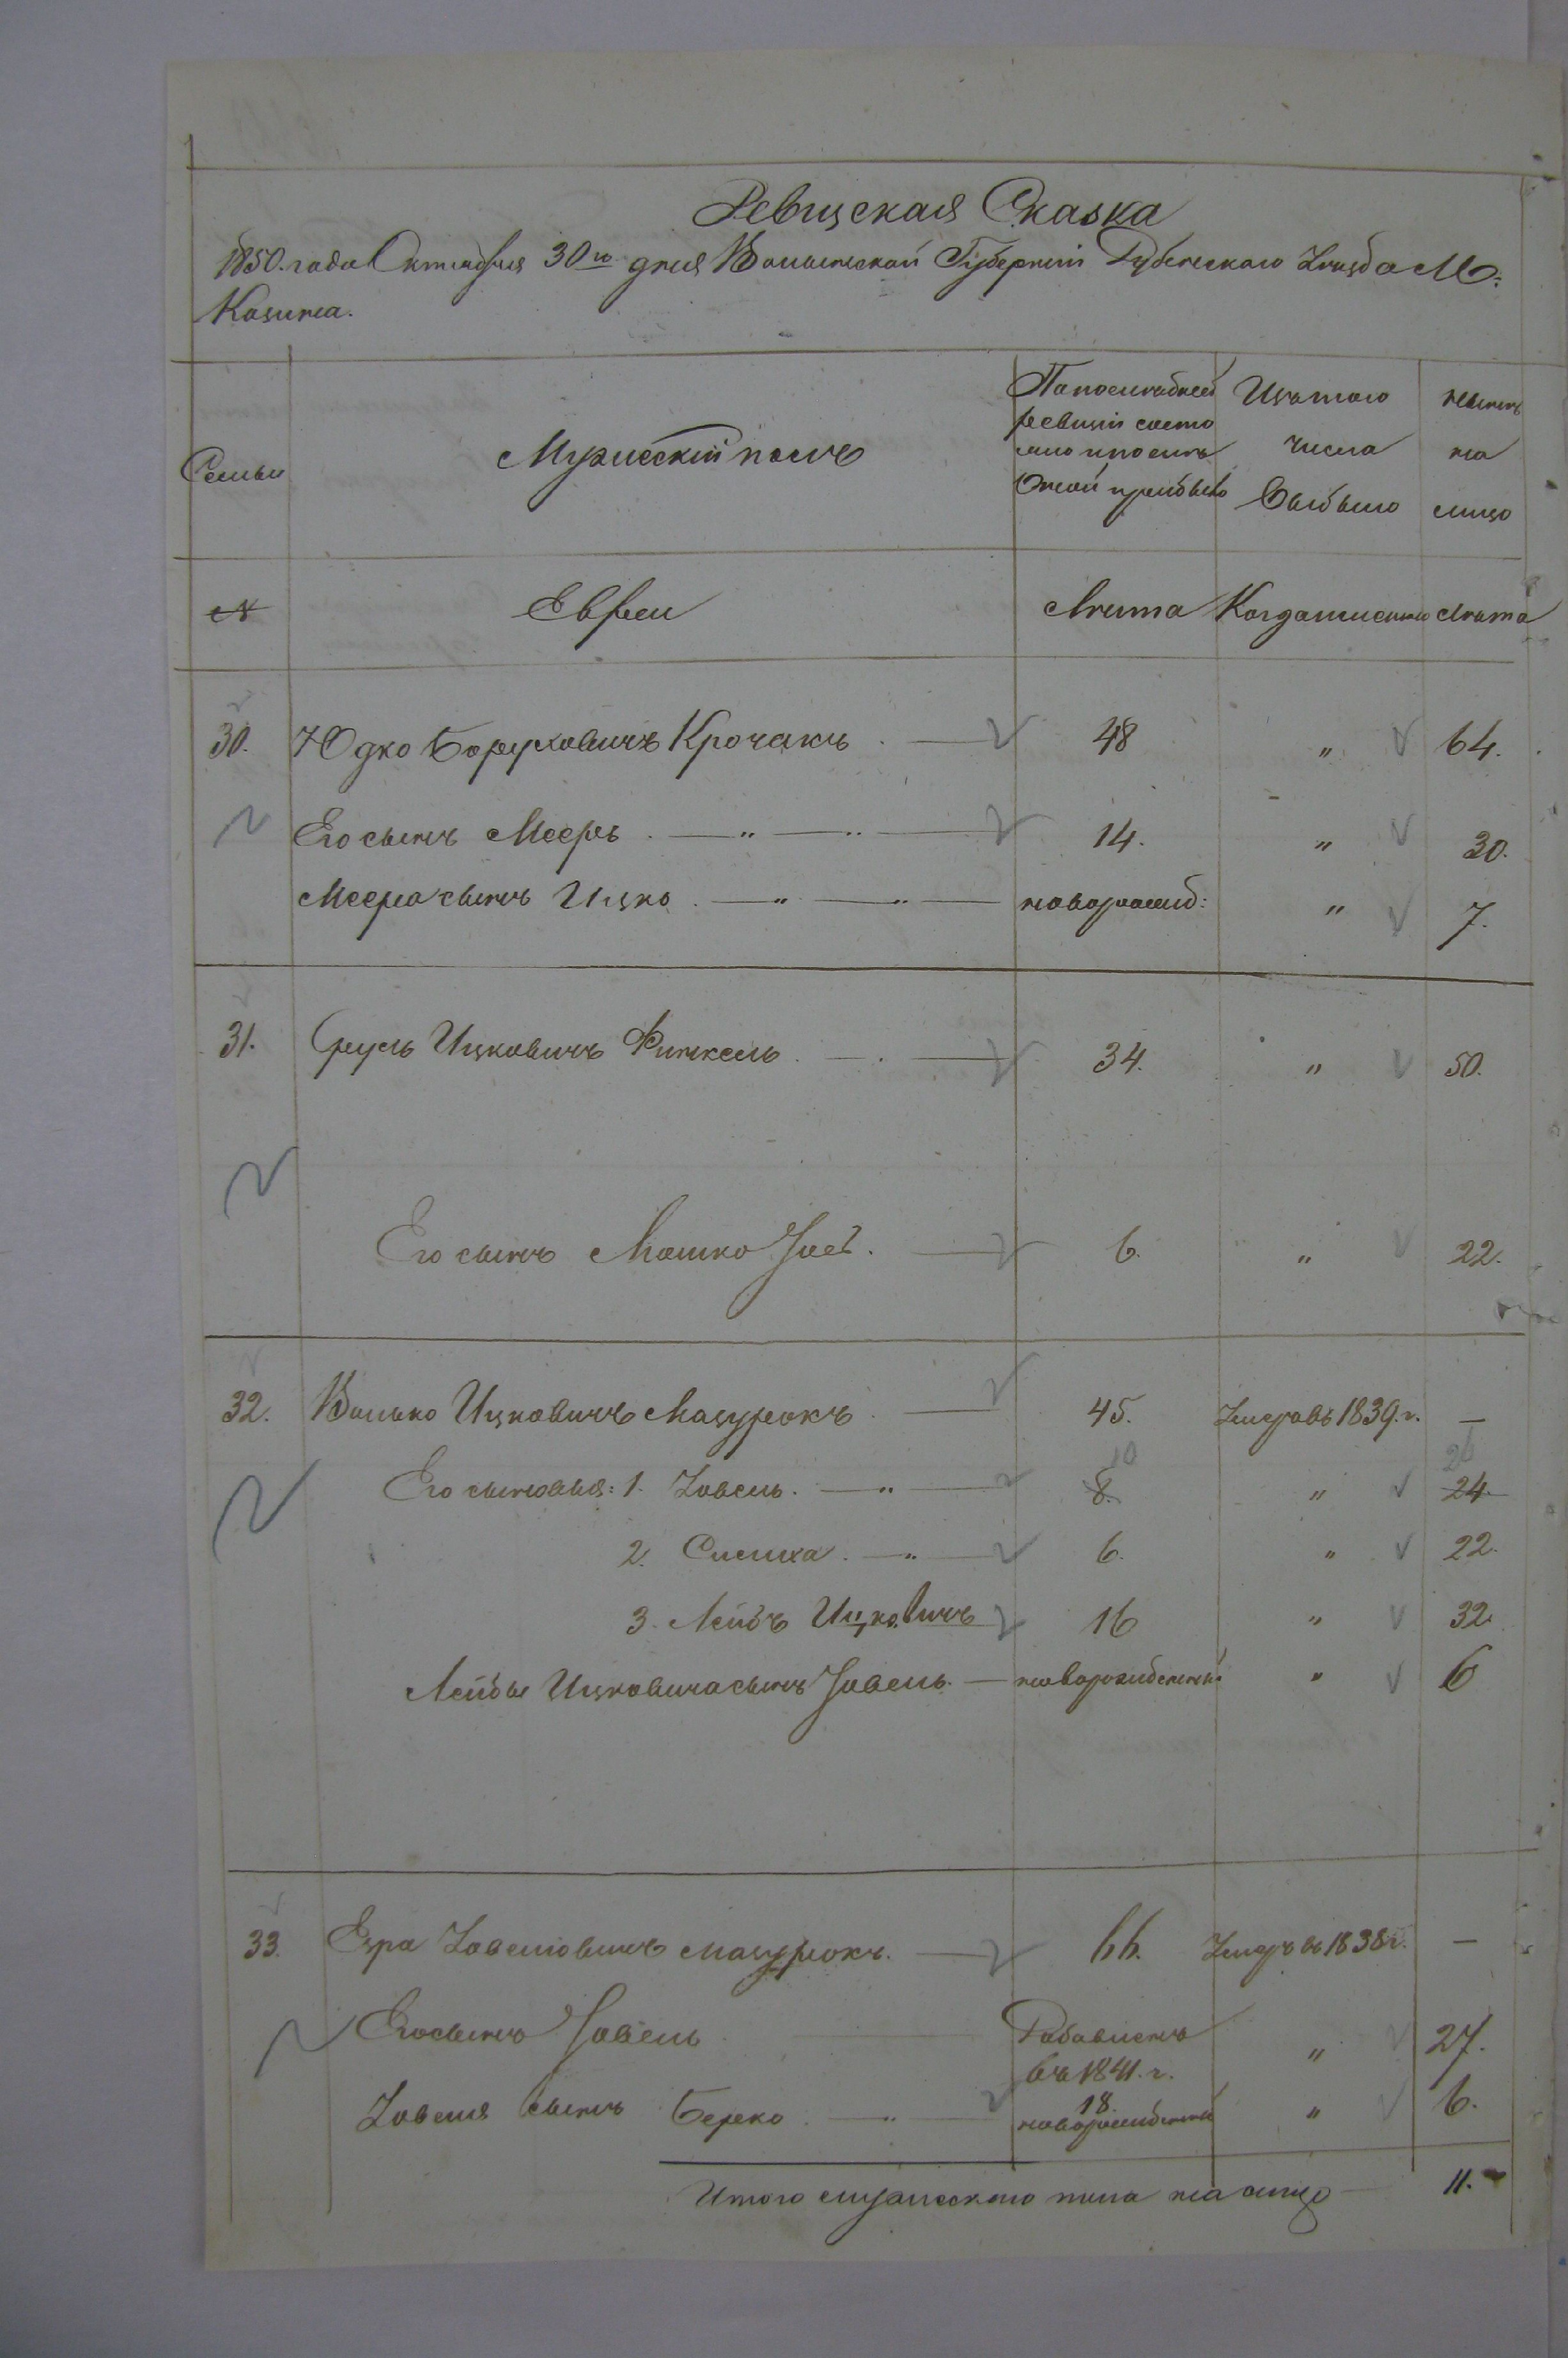 Ревизская Сказка
1850. года Октября 30го дня Волынской Губерніи Дубенскаго Уезда М:
Козина.
Семьи
Мужескій полъ
По последней Ревизіи состояло и после оной прибыло
Изъ того числа выбыло
ныне на лицо
№ Евреи Лета Когда именно Лета
30. Юдко Боруховичъ Крочакъ. 48 " 64.
Его сынъ Мееръ. — " — " — 14. " 30.
Меера сынъ Ицко. — " — " — новорожд: " 7.
31. Сруль Ицковичъ Финкель. 34. " 50.
Его сынъ Мошко 6. " 22.
32. Волько Ицковичъ Мазурокъ. 45. Умеръ въ 1839. г. —
10 26
Его сыновья: 1. Іовель. — " — 8. " 24.
2. Симха. — " — 6. " 22.
3. Лейбъ Ицковичъ 16 " 32.
Лейбы Ицковича сынъ Іовель. — новорожденный " 6
33. Іовелевичъ Мазурокъ. 66. Умеръ въ 1838 г. —
Его сынъ Іовель Добавленъ въ 1841. г. 18. " 27.
Іовеля сынъ Берко — " — новорожденный " 6.
Итого мужескаго пола на лицо — 11.